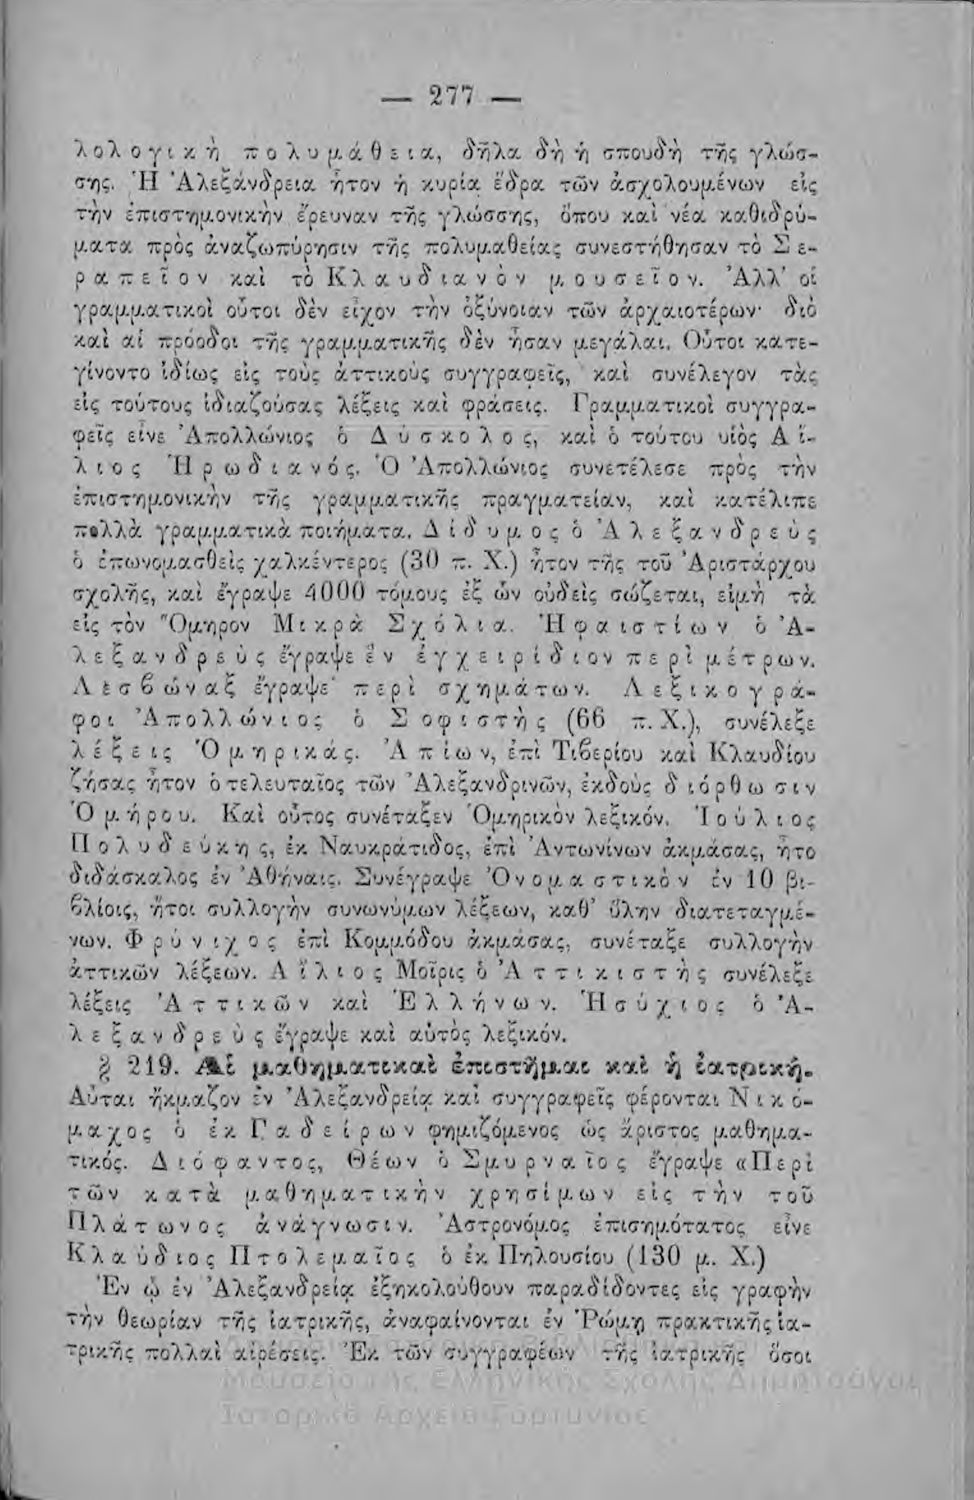 — 277 —
λολογικὴ πολυμάθεια, δῆλα δὴ ἡ σπουδὴ τῆς γλώσ-
σης. Ἡ Ἀλεξάνδρεια ἦτον ἡ κυρία ἕδρα τῶν ἀσχολουμένων εἰς
τὴν ἐπιστημονικὴν ἔρευναν τῆς γλώσσης, ὅπου καὶ νέα καθιδρύ-
ματα πρὸς ἀναζωπύρησιν τῆς πολυμαθείας συνεστήθησαν τὸ Σε-
ραπεῖον καὶ τὸ Κλαυδιανὸν μουσεῖον. Ἀλλ’ οἱ
γραμματικοὶ οὗτοι δὲν εἶχον τὴν ὀξύνοιαν τῶν ἀρχαιοτέρων· διὸ
καὶ αἱ πρόοδοι τῆς γραμματικῆς δὲν ἦσαν μεγάλαι. Οὗτοι κατε-
γίνοντο ἰδίως εἰς τοὺς ἀττικοὺς συγγραφεῖς, καὶ συνέλεγον τὰς
εἰς τούτους ἰδιαζούσας λέξεις καὶ φράσεις. Γραμματικοὶ συγγρα-
φεῖς εἶνε Ἀπολλώνιος ὁ Δύσκολος, καὶ ὁ τούτου υἱὸς Αἴ-
λιος Ἡρωδιανός. Ὁ Ἀπολλώνιος συνετέλεσε πρὸς τὴν
ἐπιστημονικὴν τῆς γραμματικῆς πραγματείαν, καὶ κατέλιπε
πολλὰ γραμματικὰ ποιήματα. Δίδυμος ὁ Ἀλεξανδρεὺς
ὁ ἐπωνομασθεὶς χαλκέντερος (30 π. Χ.) ἦτον τῆς τοῦ Ἀριστάρχου
σχολῆς, καὶ ἔγραψε 4000 τόμους ἐξ ὧν οὐδεὶς σώζεται, εἰμὴ τὰ
εἰς τὸν Ὅμηρον Μικρὰ Σχόλια. Ἡφαιστίων ὁ Ἀ-
λεξανδρεὺς ἔγραψε ἓν ἐγχειρίδιον περὶ μέτρων.
Λεσβώναξ ἔγραψε περὶ σχημάτων. Λεξικογρά-
φοι Ἀπολλώνιος ὁ Σοφιστὴς (66 π. Χ.), συνέλεξε
λέξεις Ὁμηρικάς. Ἀπίων, ἐπὶ Τιβερίου καὶ Κλαυδίου
ζήσας ἦτον ὁ τελευταῖος τῶν Ἀλεξανδρινῶν, ἐκδοὺς διόρθωσιν
Ὁμήρου. Καὶ οὗτος συνέταξεν Ὁμηρικὸν λεξικόν. Ἰούλιος
Πολυδεύκης, ἐκ Ναυκράτιδος, ἐπὶ Ἀντωνίνων ἀκμάσας, ἦτο
διδάσκαλος ἐν Ἀθήναις. Συνέγραψε Ὀνομαστικὸν ἐν 10 βι-
βλίοις, ἤτοι συλλογὴν συνωνύμων λέξεων, καθ’ ὕλην διατεταγμέ-
νων. Φρύνιχος ἐπὶ Κομμόδου ἀκμάσας, συνέταξε συλλογὴν
ἀττικῶν λέξεων. Αἴλιος Μοῖρις ὁ Ἀττικιστὴς συνέλεξε
λέξεις Ἀττικῶν καὶ Ἑλλήνων. Ἡσύχιος ὁ Ἀ-
λεξανδρεὺς ἔγραψε καὶ αὐτὸς λεξικόν.
§ 219. Αἱ μαθηματικαὶ ἐπιστῆμαι καὶ ἡ ἰατρική.
Αὗται ἤκμαζον ἐν Ἀλεξανδρείᾳ καὶ συγγραφεῖς φέρονται Νικό-
μαχος ὁ ἐκ Γαδείρων φημιζόμενος ὡς ἄριστος μαθημα-
τικός. Διόφαντος, Θέων ὁ Σμυρναῖος ἔγραψε «Περὶ
τῶν κατὰ μαθηματικὴν χρησίμων εἰς τὴν τοῦ
Πλάτωνος ἀνάγνωσιν. Ἀστρονόμος ἐπισημότατος εἶνε
Κλαύδιος Πτολεμαῖος ὁ ἐκ Πηλουσίου (130 μ. Χ.)
Ἐν ᾧ ἐν Ἀλεξανδρείᾳ ἐξηκολούθουν παραδίδοντες εἰς γραφὴν
τὴν θεωρίαν τῆς ἰατρικῆς, ἀναφαίνονται ἐν Ῥώμῃ πρακτικῆς ἰα-
τρικῆς πολλαὶ αἱρέσεις. Ἐκ τῶν συγγραφέων τῆς ἰατρικῆς ὅσοι
Μουσείο της Ελληνικής Σχολής Δημητσάνας
Ιστορικό Αρχείο Γορτυνίας